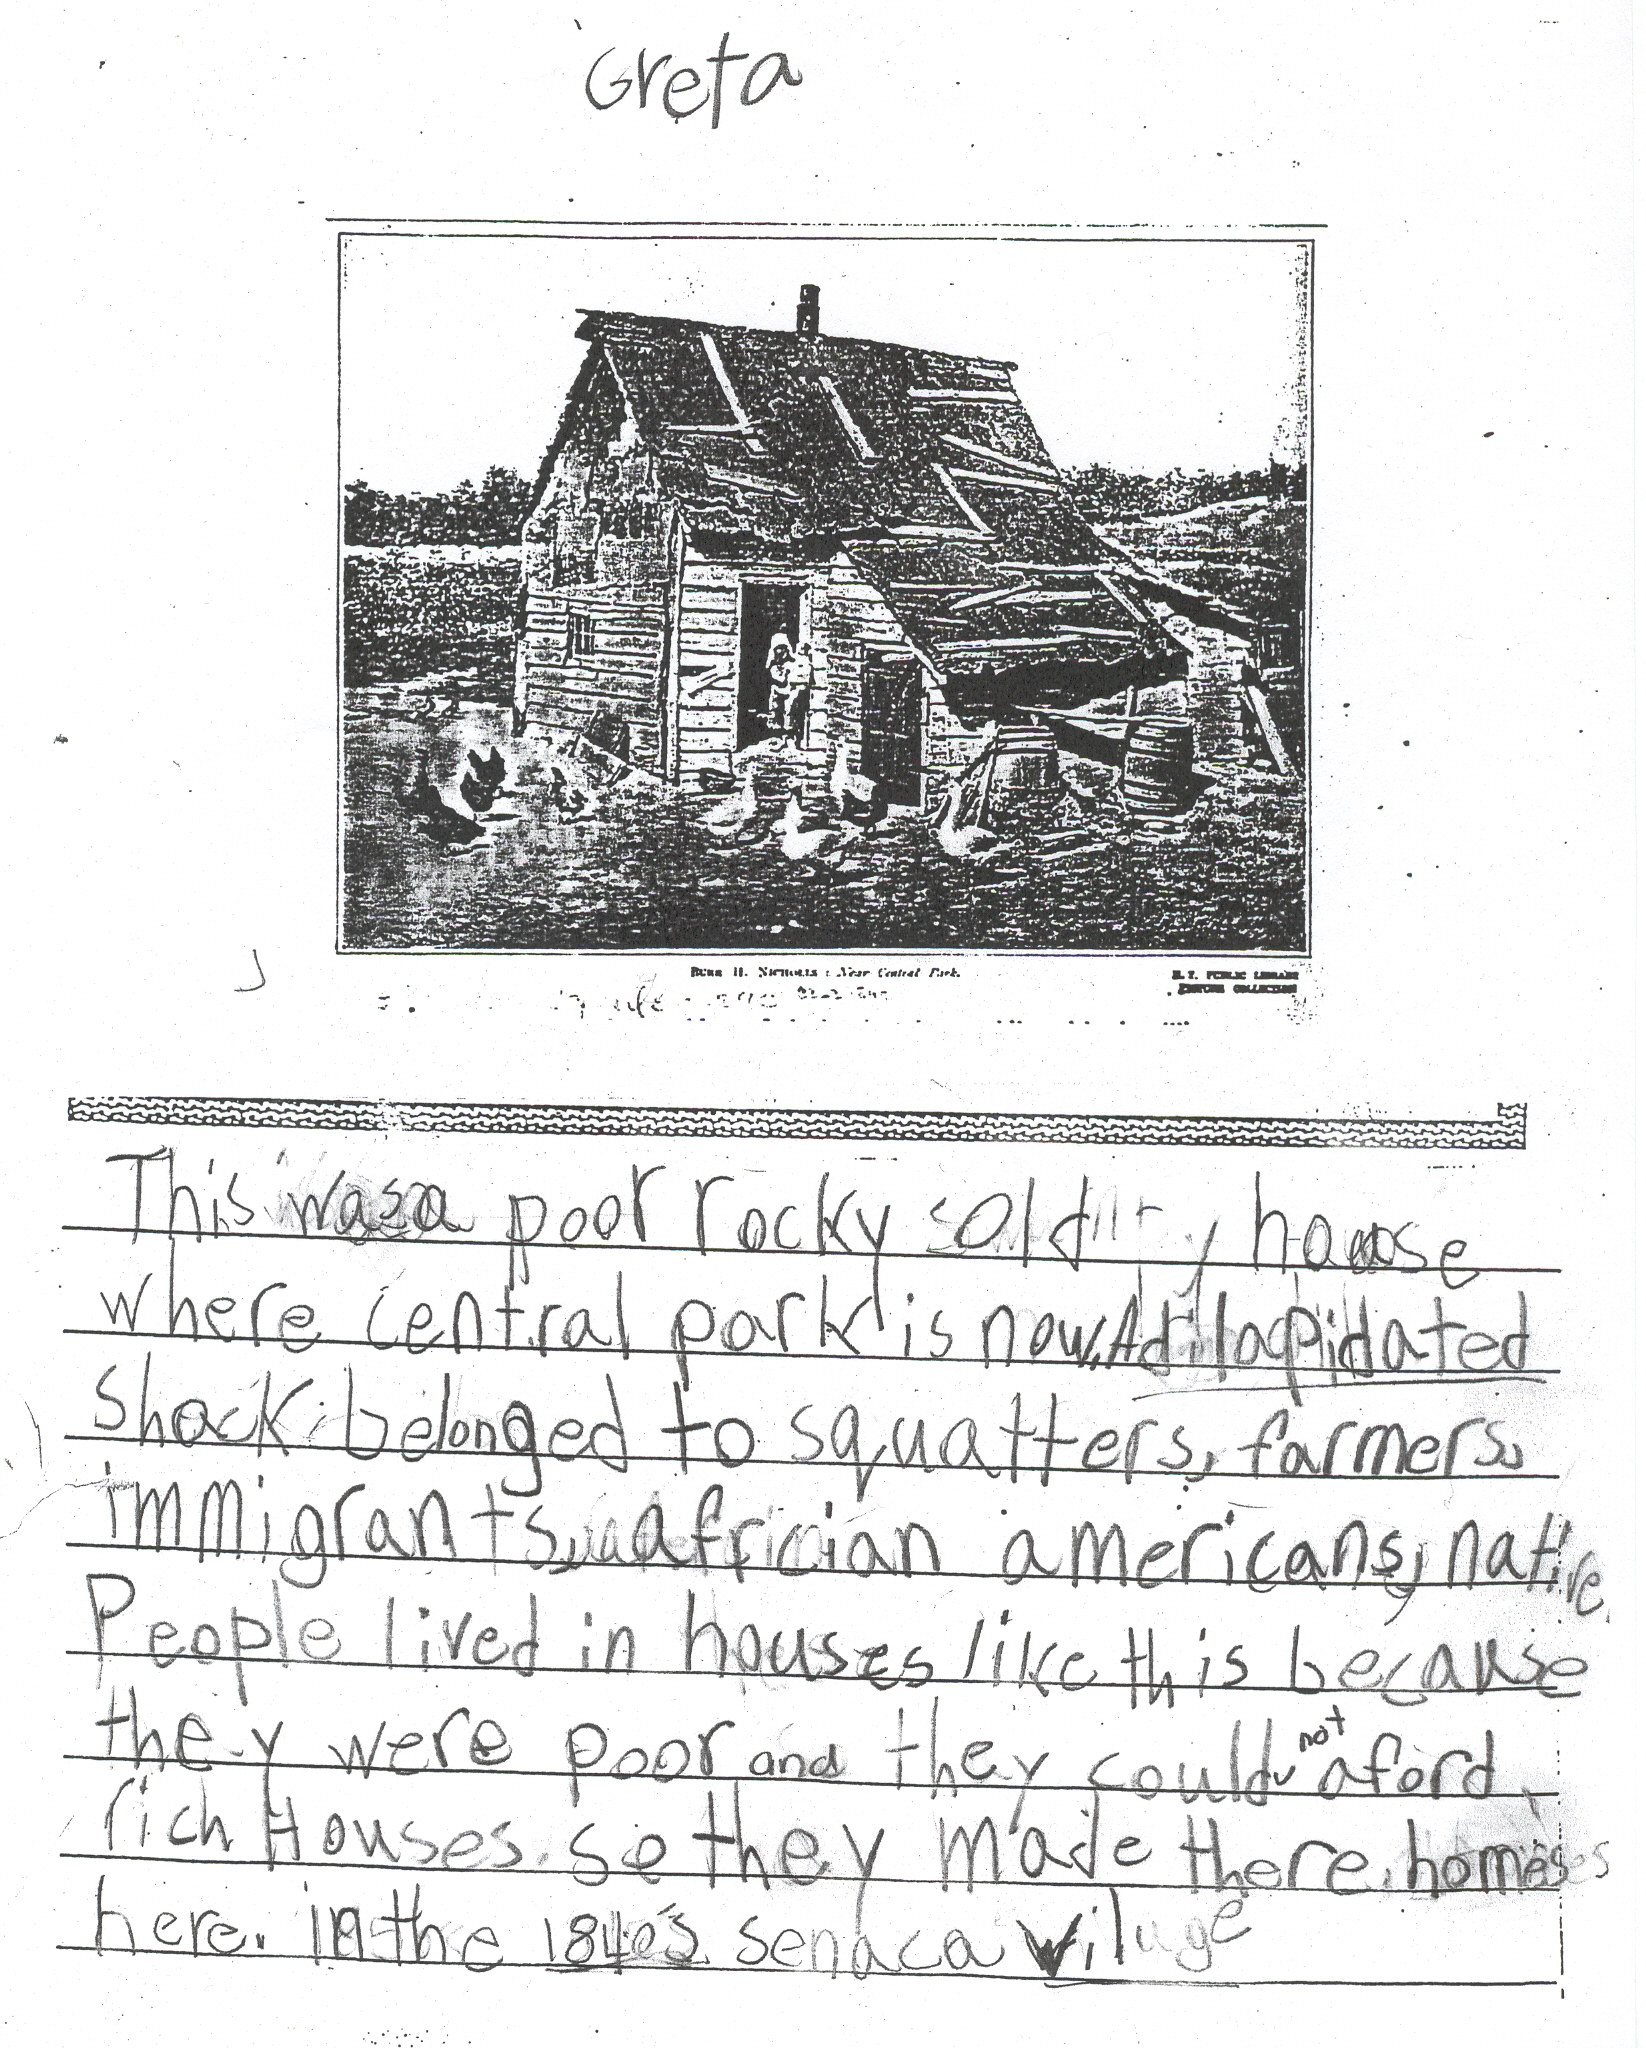 Greta
BURR H. NICHOLLS : Near Central Park.
N.Y. PUBLIC LIBRARY
PICTURE COLLECTION
This was a poor rocky sold house
where central park is now. A dilapidated
shack belonged to squatters, farmers,
immigrants, africian americans, native
People lived in houses like this because
they were poor and they could not aford
rich Houses. so they made there homes
here. in the 1840's senaca vilage